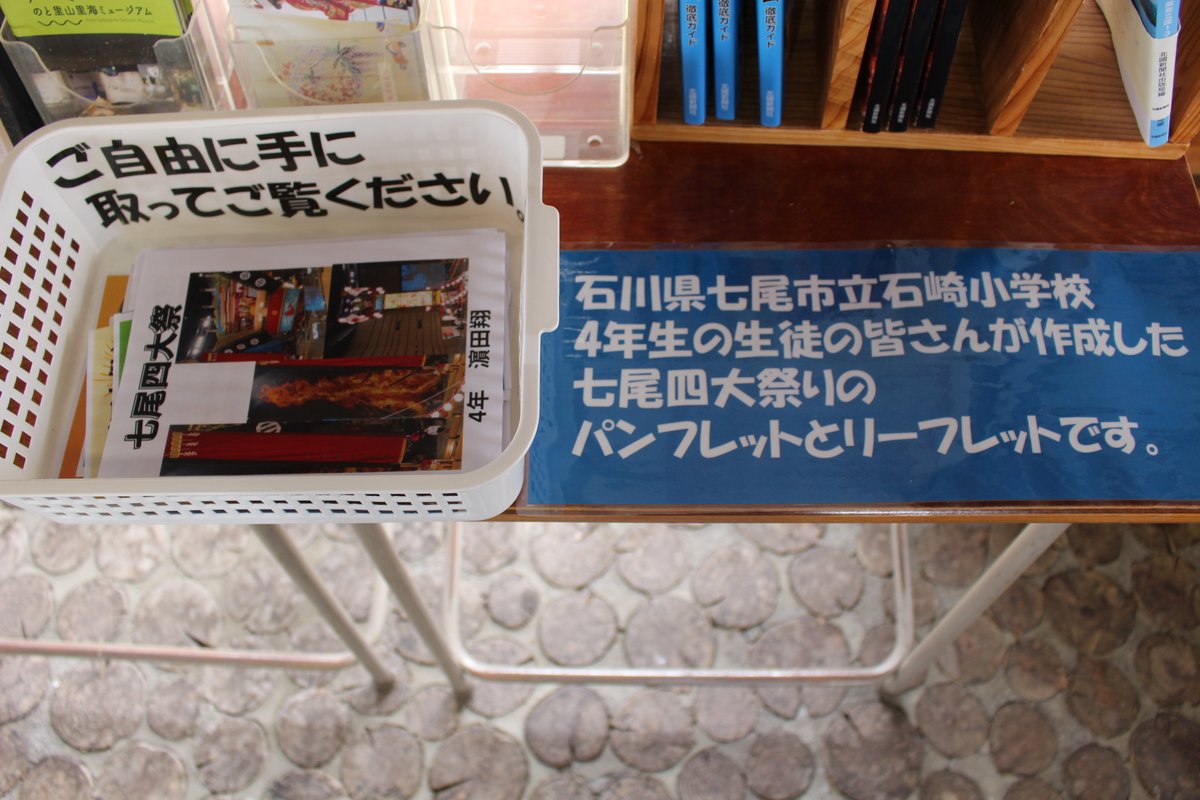 のと里山里海ミュージアム
徹底ガイド
徹底ガイド
徹底ガイド
北國新聞社
北國新聞社
北國新聞社
北國新聞社出版局編
ご自由に手に
取ってご覧ください。
七尾四大祭
4年 濵田翔
石川県七尾市立石崎小学校
4年生の生徒の皆さんが作成した
七尾四大祭りの
パンフレットとリーフレットです。